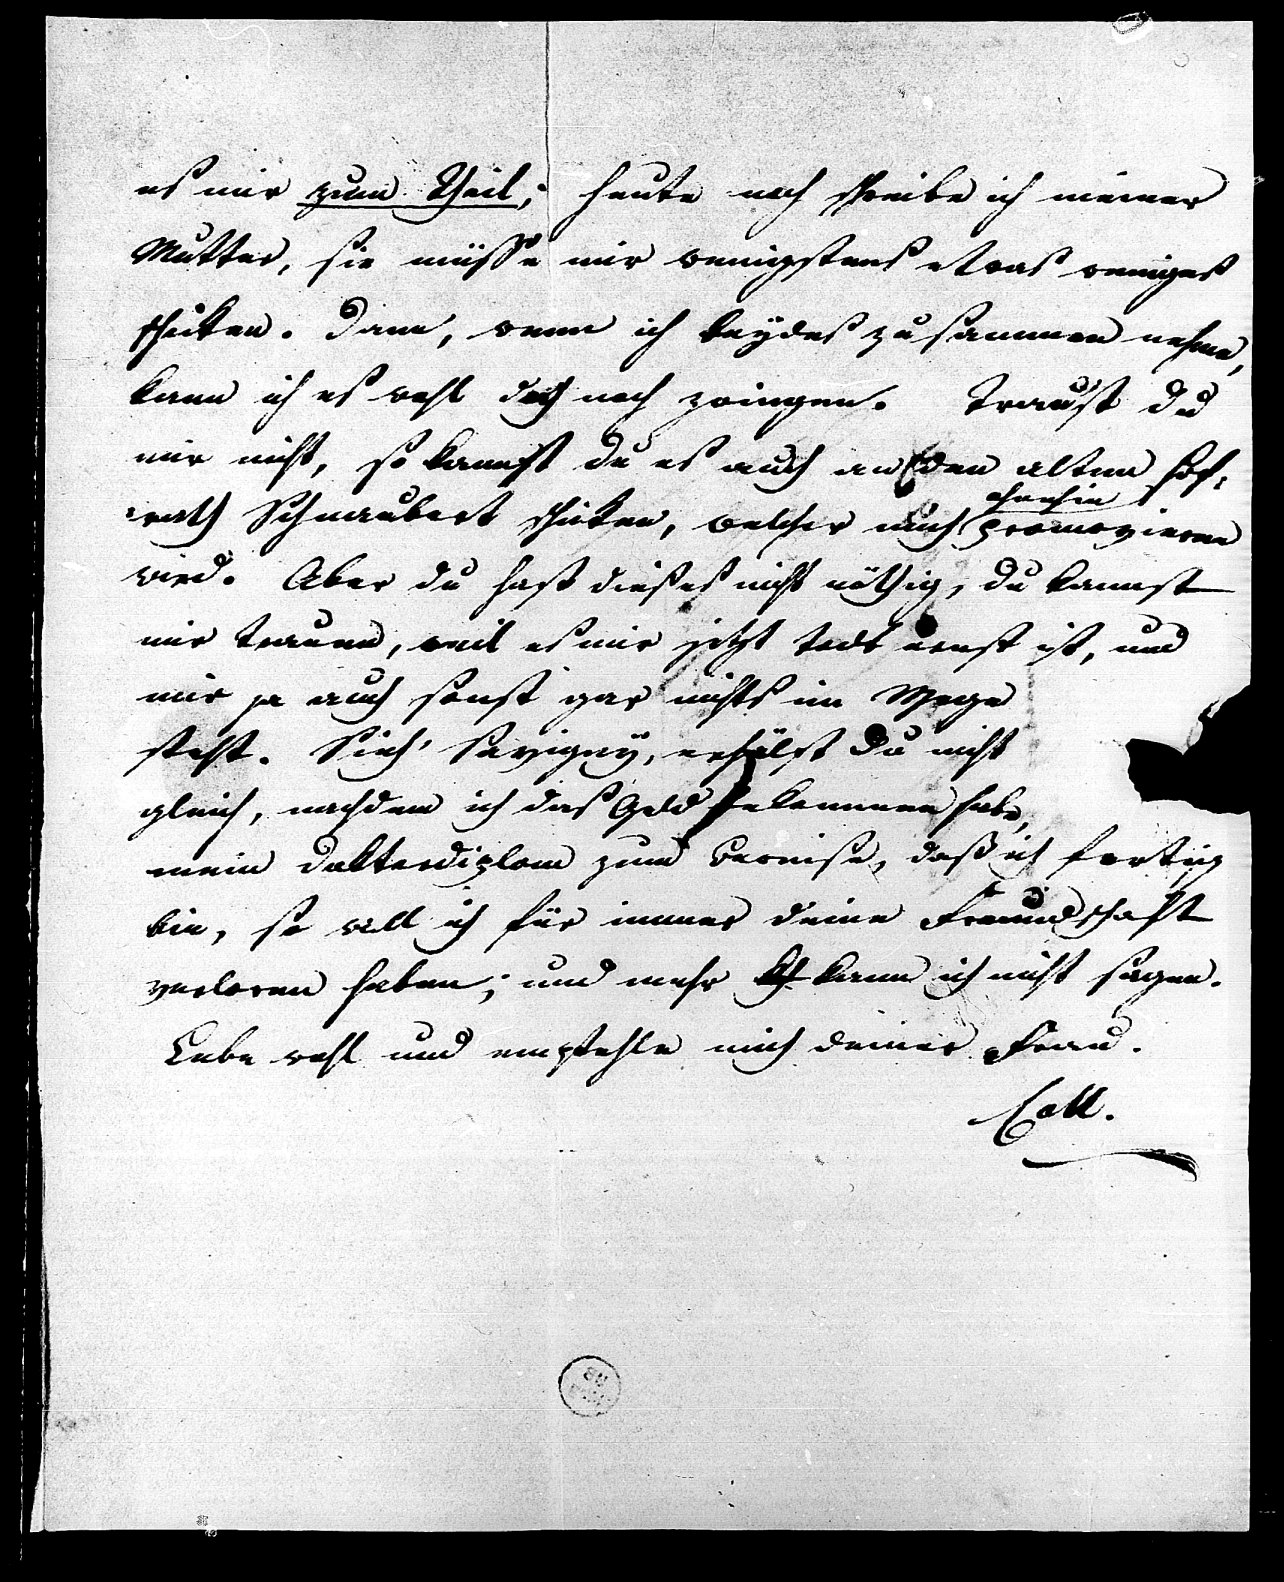 es mir zum Theil; heute noch schreibe ich meiner
Mutter, sie müsse mir wenigstens etwas weniges
schicken. Dann, wenn ich beydes zusammen nehme,
kann ich es wohl doch noch zwingen. Traust du
mir nicht, so kannst du es auch an den alten Hof-
rath Schnaubert schicken, welcher mich ohnehin promovieren
wird. Aber du hast dieses nicht nöthig, du kannst
mir trauen, weil es mir jetzt todt ernst ist, und
mir ja auch sonst gar nichts im Wege
steht. Sieh' Savigny, erhälst du nicht
gleich, nachdem ich das Geld bekommen habe,
mein doktordiplom zum Beweise, daß ich fertig
bin, so will ich für immer deine Freundschaft
verloren haben; und mehr kann ich nicht sagen.
Lebe wohl und empfehle mich deiner Frau.